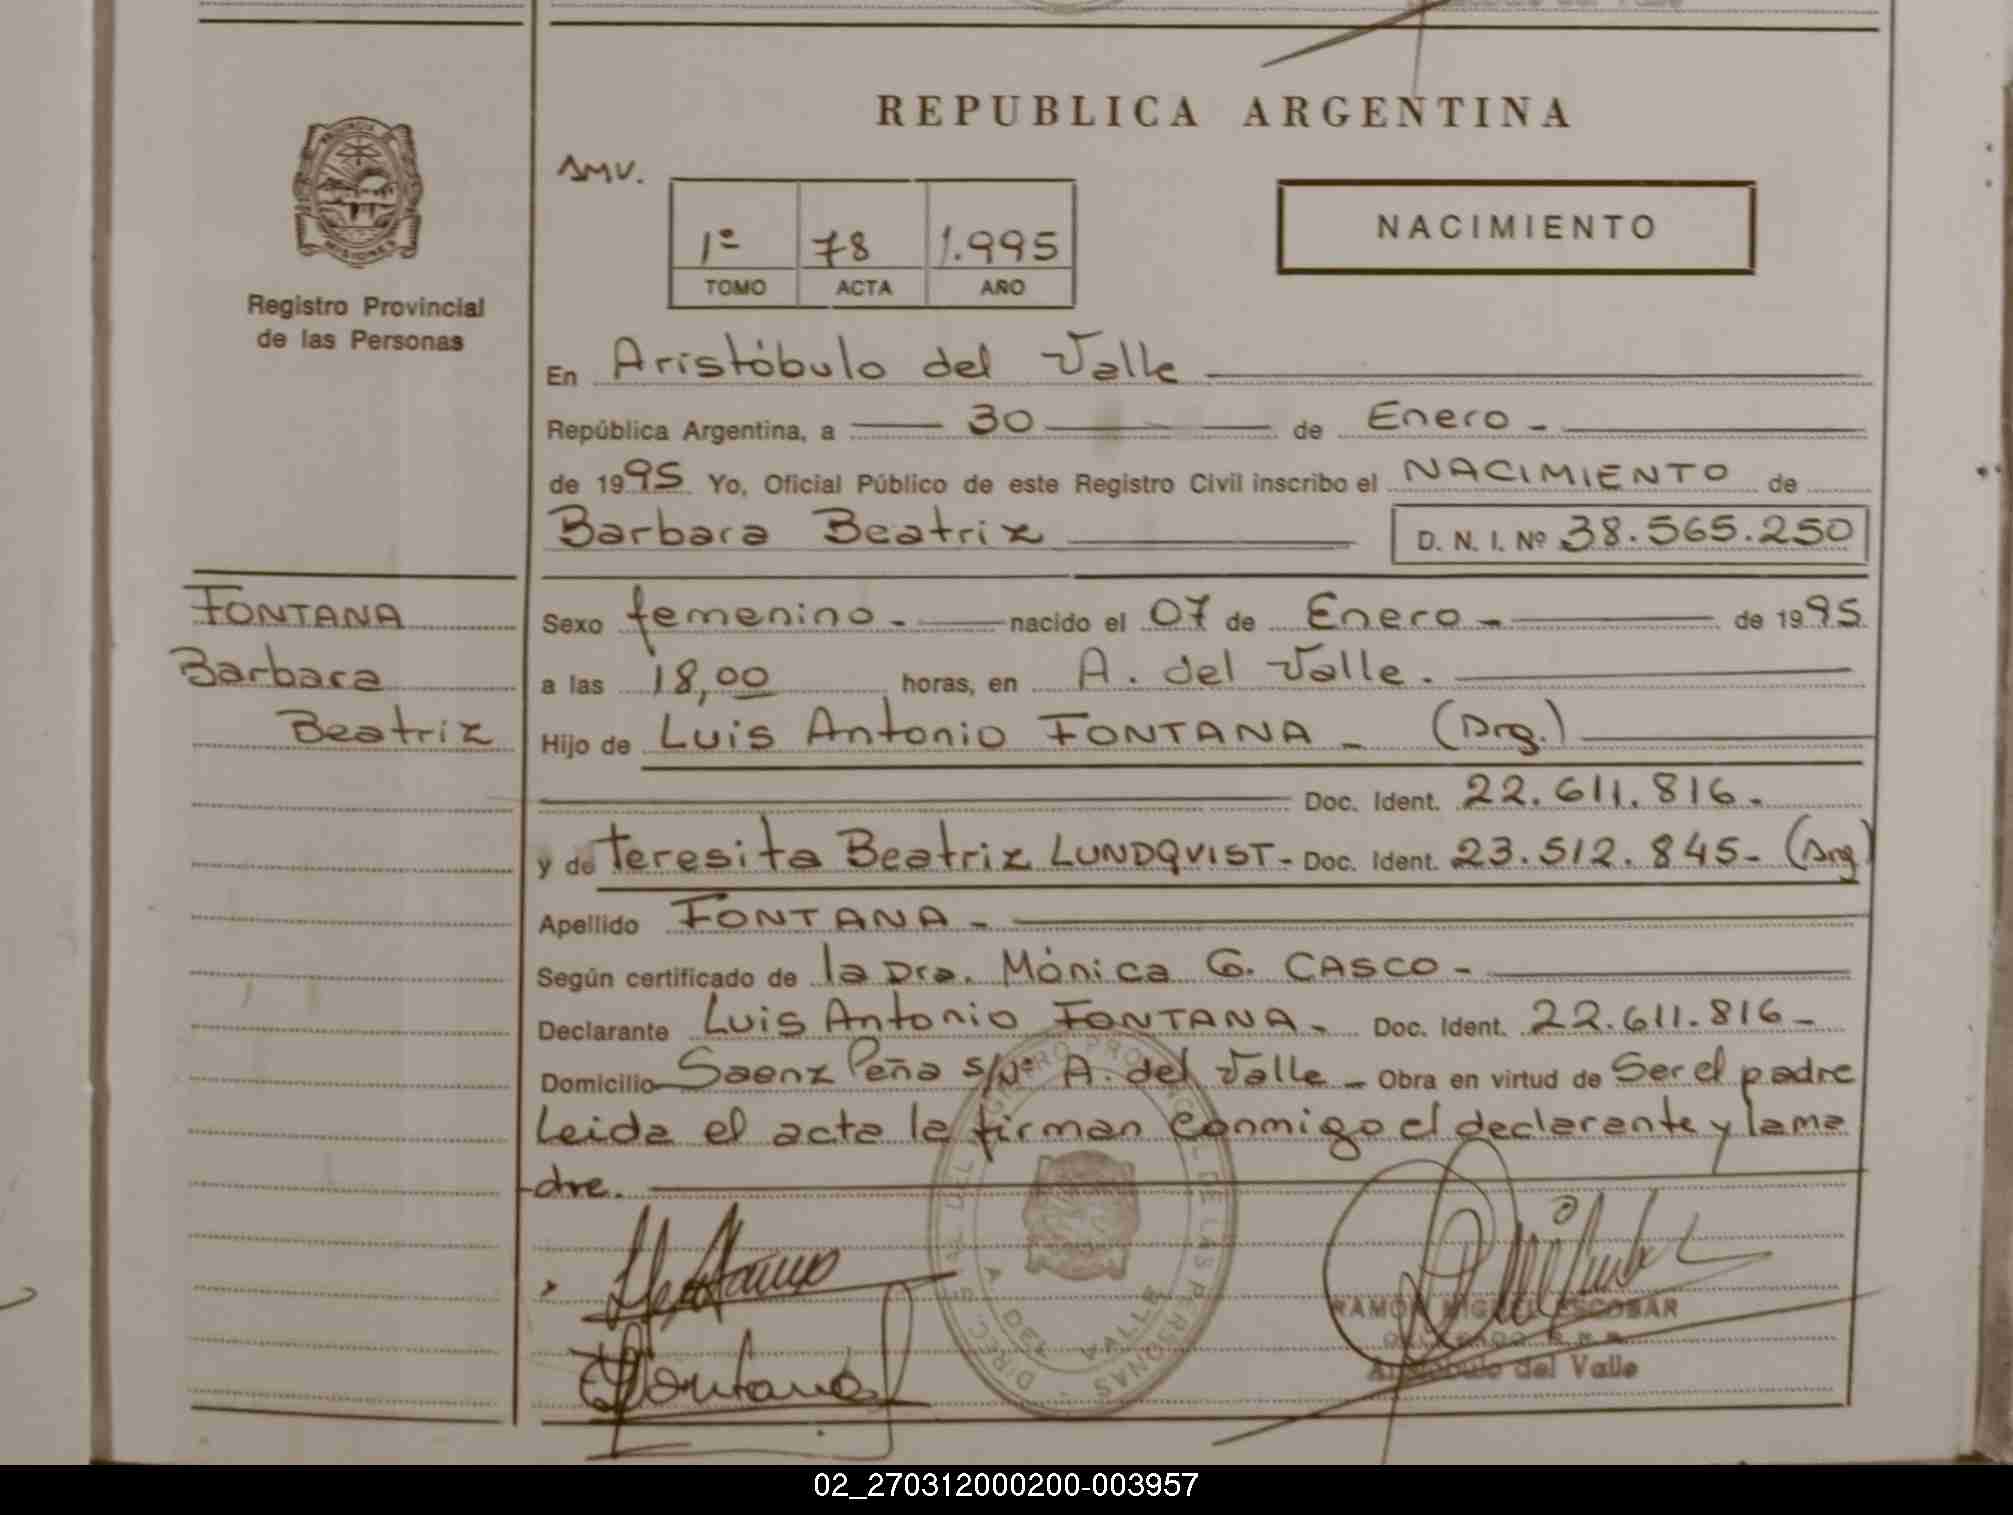 REPUBLICA ARGENTINA
PROVINCIA
MISIONES
Registro Provincial
de las Personas
AMV.
1º 78 1.995
TOMO ACTA AÑO
NACIMIENTO
En Aristóbulo del Valle
República Argentina, a 30 de Enero -
de 1995 Yo, Oficial Público de este Registro Civil inscribo el NACIMIENTO de
Barbara Beatriz D. N. I. Nº 38.565.250
FONTANA
Barbara
Beatriz
Sexo femenino - nacido el 07 de Enero - de 1995
a las 18,00 horas, en A. del Valle.
Hijo de Luis Antonio FONTANA - (Arg.)
Doc. Ident. 22.611.816.
y de Teresita Beatriz LUNDQVIST - Doc. Ident. 23.512.845 - (Arg)
Apellido FONTANA -
Según certificado de la Dra. Mónica G. CASCO -
Declarante Luis Antonio FONTANA - Doc. Ident. 22.611.816 -
Domicilio Saenz Peña s/Nº A. del Valle - Obra en virtud de Ser el padre
Leida el acta la firman conmigo el declarante y la ma
-dre.
DIREC. GRAL DEL REGISTRO PROVINCIAL DE LAS PERSONAS
A. DEL VALLE
RAMON MIGUEL ESCOBAR
DELEGADO R.P.P.
Aristóbulo del Valle
02_270312000200-003957